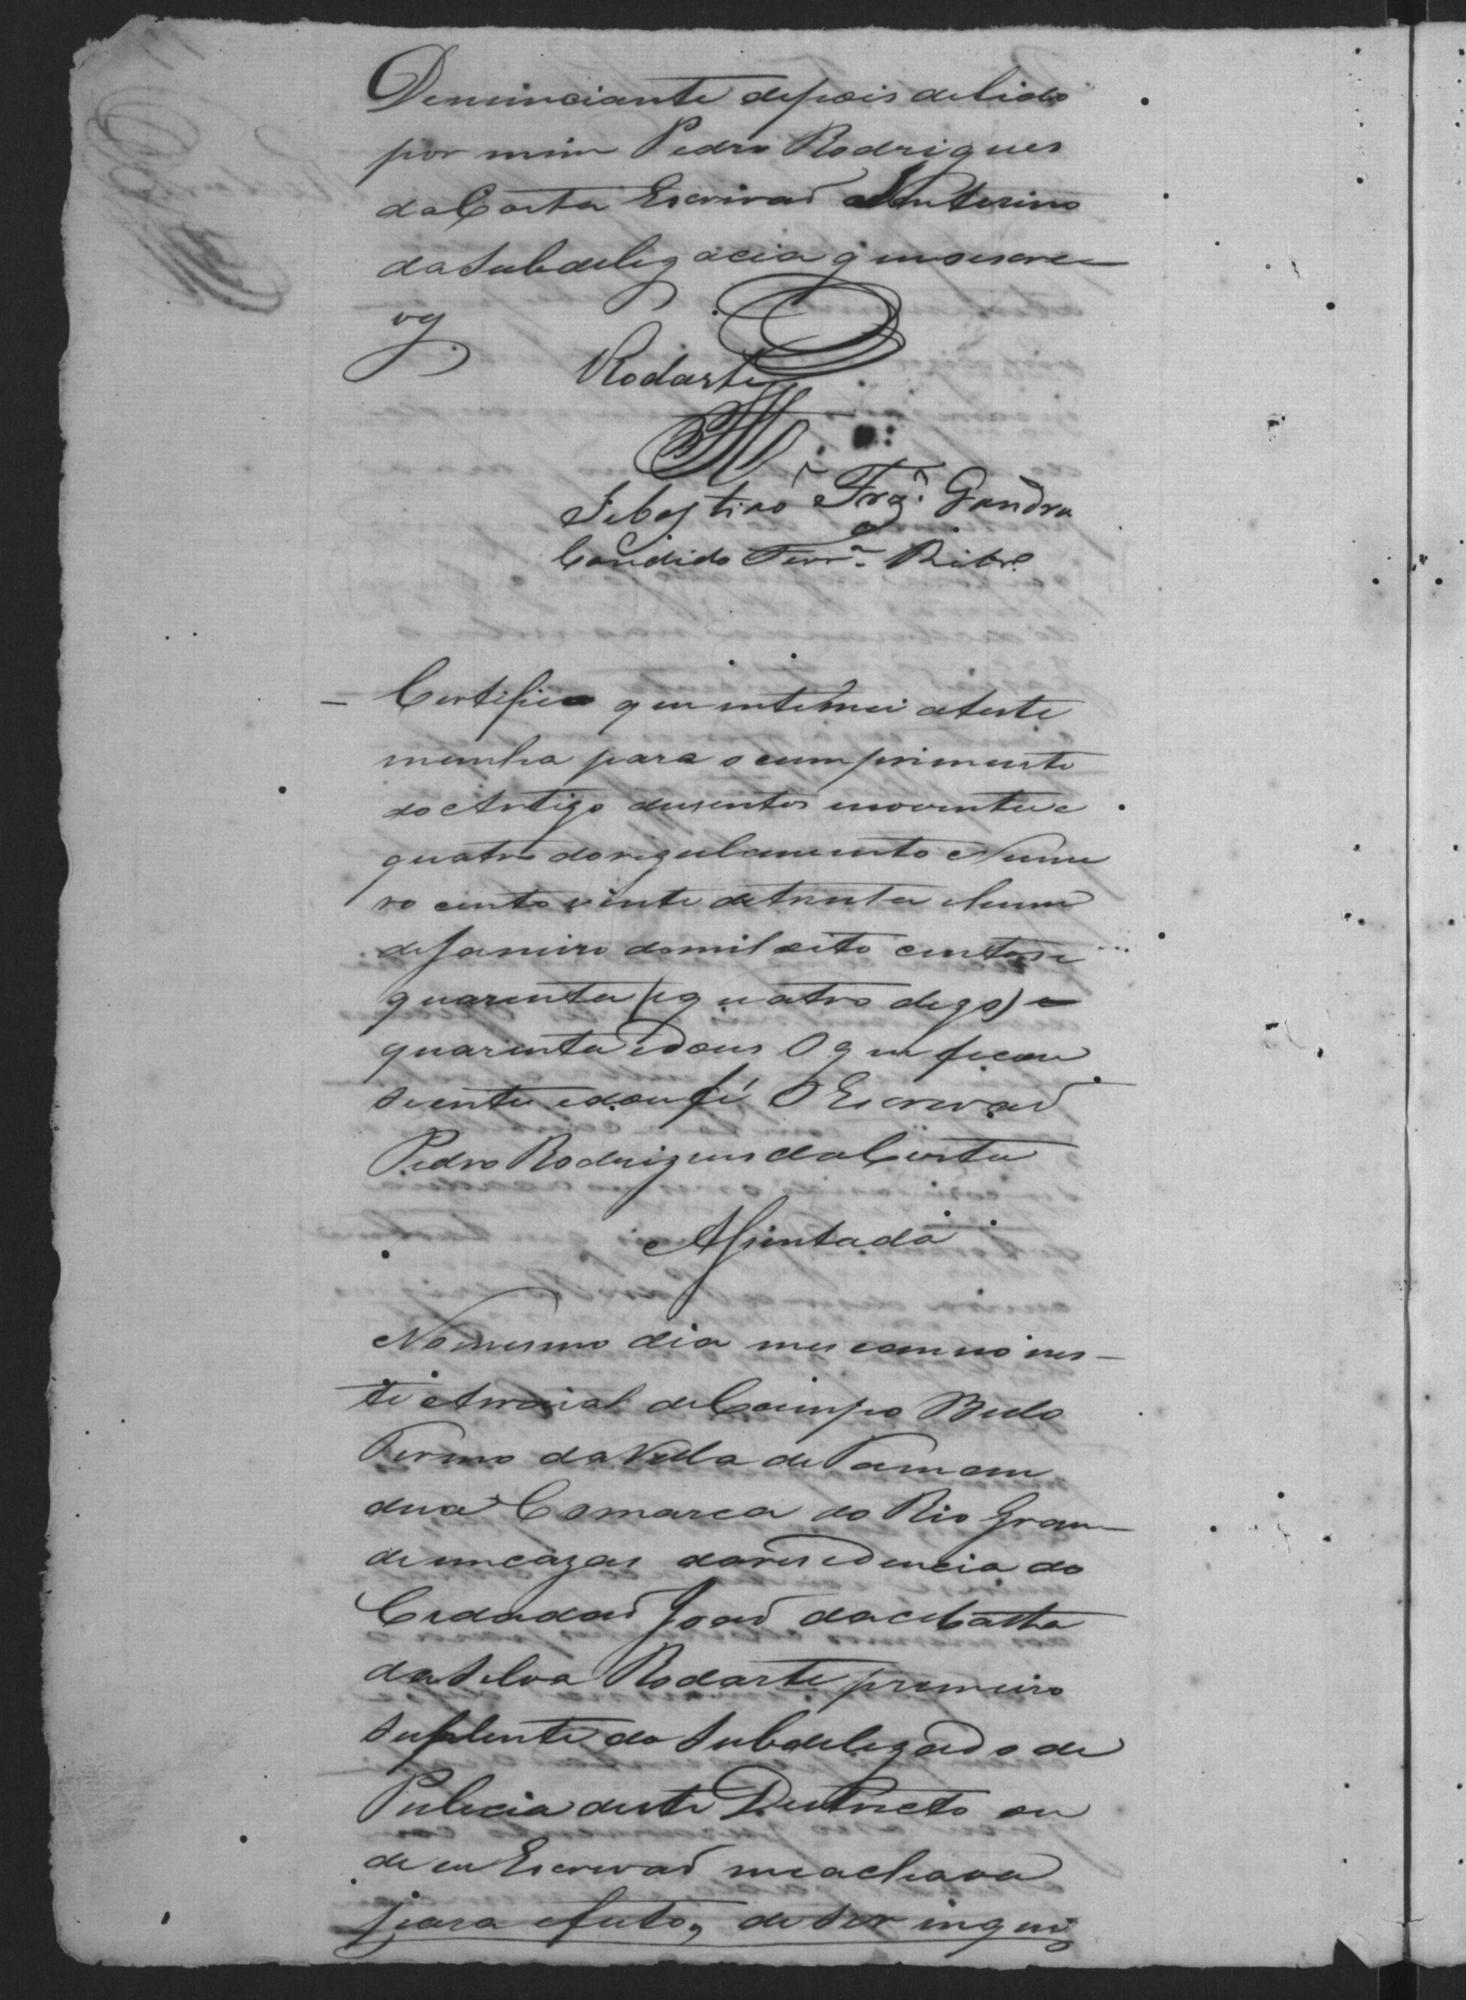 Denunciante depois de lido
por mim Pedro Rodrigues
da Costa Escrivaõ Enterino
da Subdelegacia q̃ maescre
vy.
Rodarte
Sebastiaõ Frz͂. Gandra
Candido Ferr.ª Ribr.º
Certifico que intemei ateste
munha para ocumprimento
do Artigo dusentos enoventa e
quatro doregulamento Nume
ro cento evinte de trinta ehum
de Janeiro demil oito centos e
quarenta (equatro digo) e
quarenta edous O que ficou
siente edou fé O Escrivaõ
Pedro Rodrigues da Costa
Assentada
No mesmo dia mes eanno nes-
te Arraial de Campo Bello
Termo da Villa de Taman
dua Comarca do Rio Gran-
de em cazas da residencia do
Cidadaõ Joaõ da Costa
da Silva Rodarte primeiro
Suplente do Subdelegado de
Pulicia deste Destricto on
de eu Escrivaõ me achava
para efeito, de ser inqui